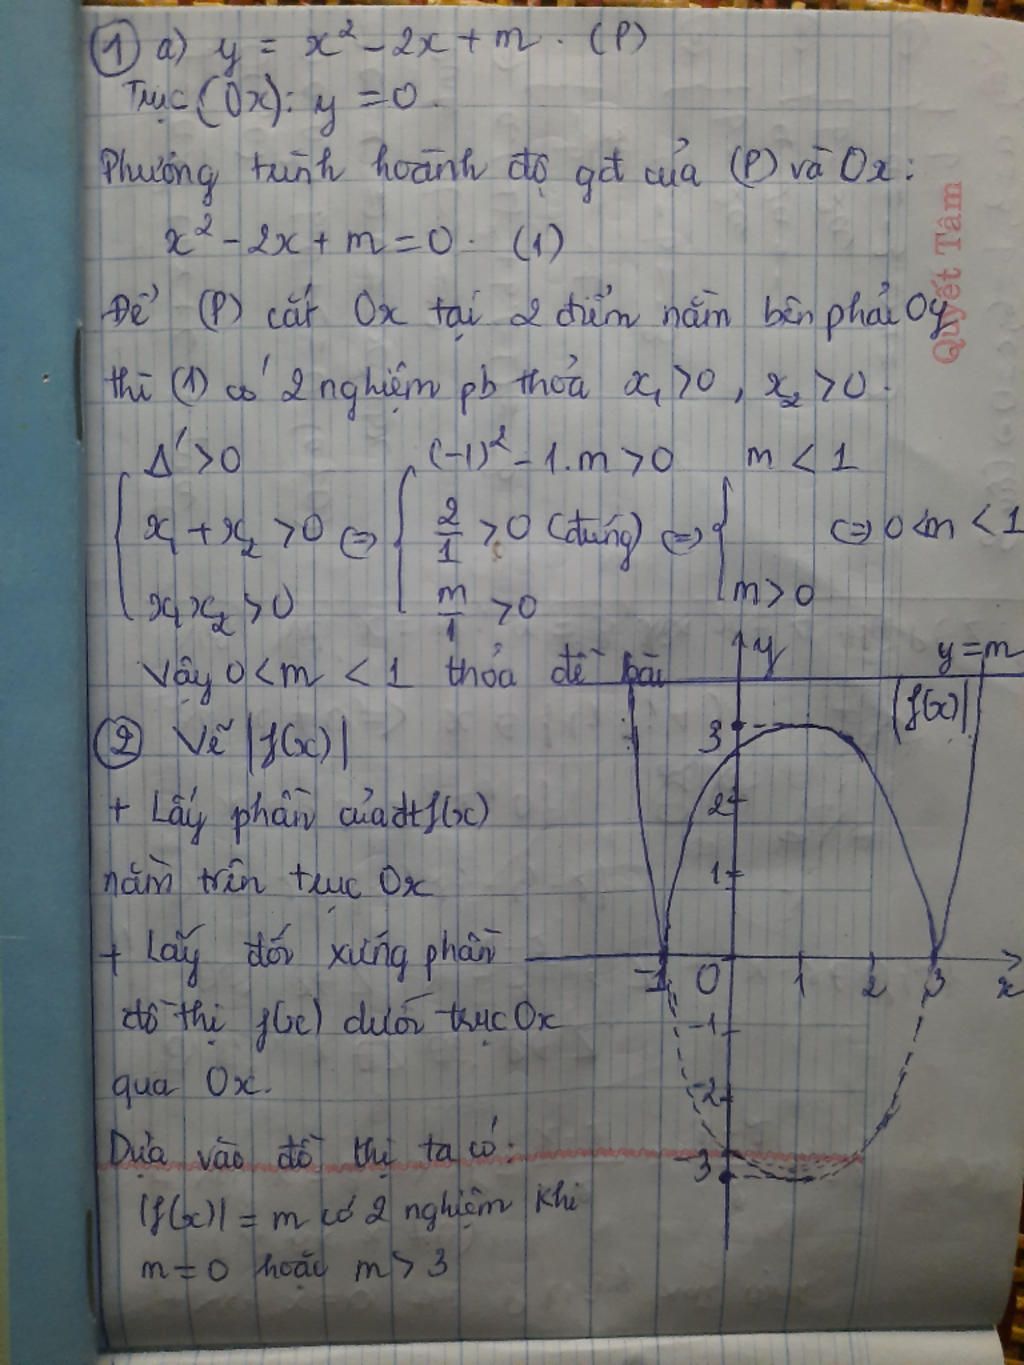 ① a) y = x² - 2x + m. (P)
Trục (Ox): y = 0.
Phương trình hoành độ gđ của (P) và Ox:
x² - 2x + m = 0. (1)
Để (P) cắt Ox tại 2 điểm nằm bên phải Oy
thì (1) có 2 nghiệm pb thỏa x₁ > 0, x₂ > 0.
{ Δ' > 0 { (-1)² - 1.m > 0 { m < 1
x₁ + x₂ > 0 ⇔ 2/1 > 0 (đúng) ⇔ ⇔ 0 < m < 1
x₁x₂ > 0 m/1 > 0 m > 0
Vậy 0 < m < 1 thỏa đề bài
② Vẽ |f(x)|
+ Lấy phần của đt f(x)
nằm trên trục Ox
+ Lấy đối xứng phần
đồ thị f(x) dưới trục Ox
qua Ox.
Dựa vào đồ thị ta có:
|f(x)| = m có 2 nghiệm khi
m = 0 hoặc m > 3
y
y = m
|f(x)|
3
2
1
-1 0 1 2 3 x
-1
-2
-3
Quyết Tâm